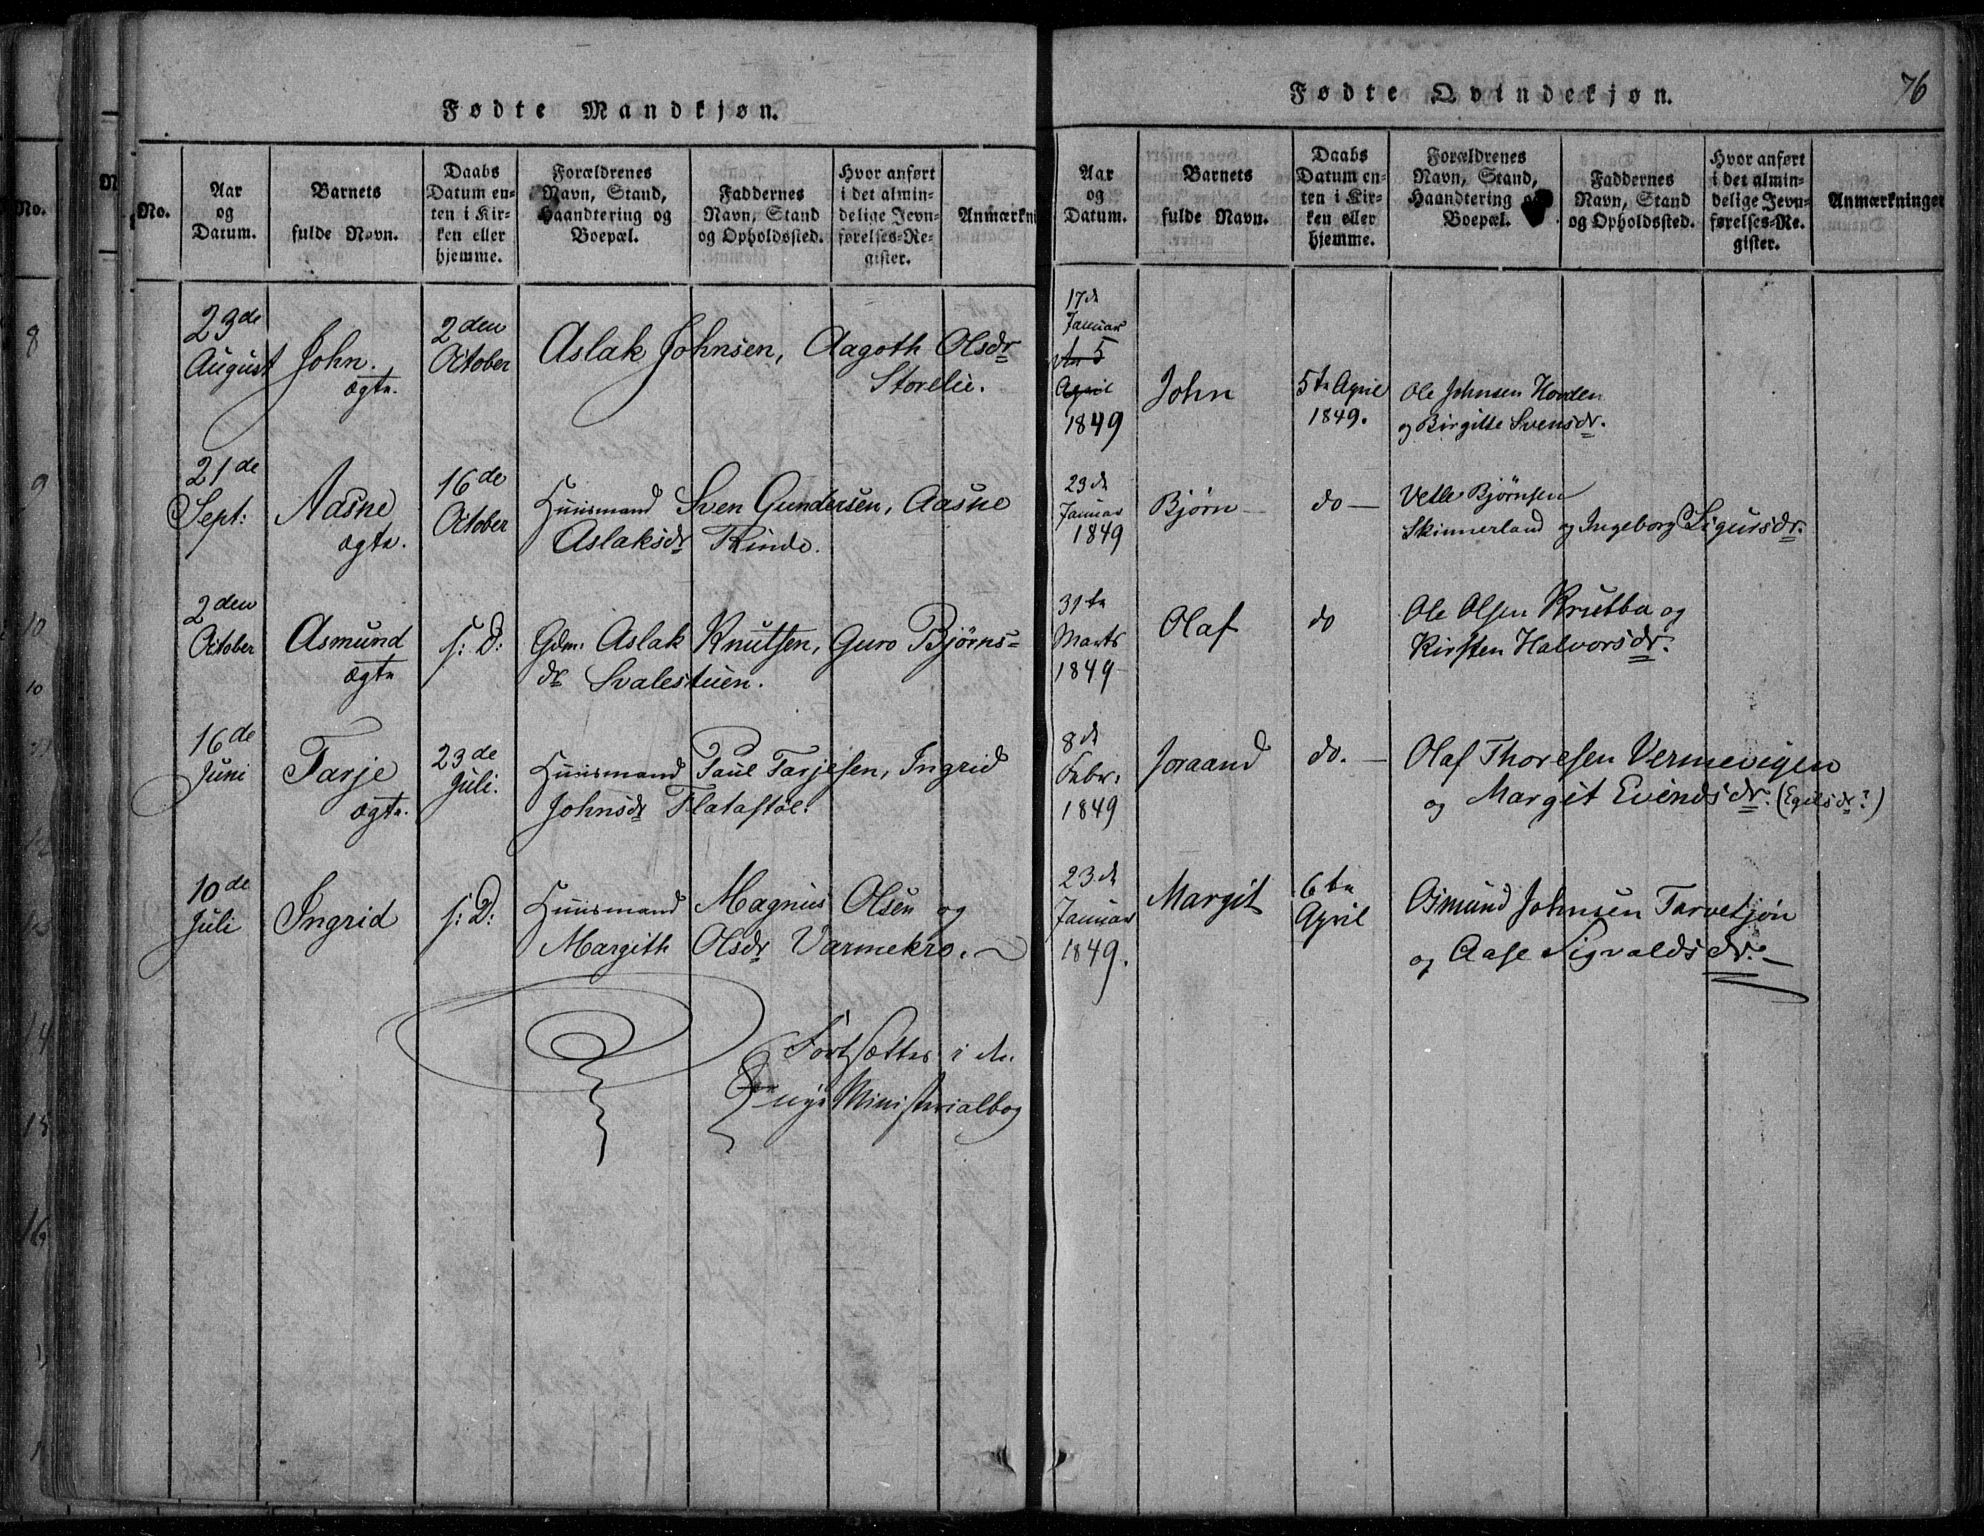 Fødte Mandkjøn.
No.
Aar
og
Datum.
Barnets
fulde Navn.
Daabs
Datum en-
ten i Kir-
ken eller
hjemme.
Forældrenes
Navn, Stand,
Haandtering og
Boepæl.
Faddernes
Navn, Stand
og Opholdssted.
Hvor anført
i det almin-
delige Jevn-
førelses-Re-
gister.
Anmærkni
23de
August
John.
ægte.
2den
October
Aslak Johnsen, Aagoth Olsdr
Storelie.
21de
Sept:
Aasne
ægte.
16de
October
Huusmand Sven Gundersen, Aasne
Aslaksdr Rinde.
2den
October
Asmund
ægte
s: D:
Gdm. Aslak Knutsen, Guro Bjørns=
dr Svalestuen.
16de
Juni
Tarje
ægte.
23de
Juli.
Huusmand Paul Tarjesen, Ingrid
Johnsdr Flatastøl.
10de
Juli
Ingrid
s: D:
Huusmand Magnus Olsen og
Margith Olsdr Varmekro.
Fortsættes i de.
nye Ministerialbog
Fødte Qvindekjøn.
76
Aar
og
Datum.
Barnets
fulde Navn.
Daabs
Datum en-
ten i Kir-
ken eller
hjemme.
Forældrenes
Navn, Stand,
Haandtering
Boepæl.
Faddernes
Navn, Stand
og Opholdssted.
Hvor anført
i det almin-
delige Jevn-
førelses-Re-
gister.
Anmærkninger
17de
Januar
5
April
1849
John
5te April
1849.
Ole Johnsen Hovden
og Birgitte Svensdr.
23de
Januar
1849
Bjørn —
do —
Vetle Bjørnsen
Skinnerland og Ingeborg Sigursdr.
31te
Marts
1849
Olaf
do
Ole Olsen Krutba og
Kirsten Halvorsdr.
8de
Febr.
1849
Joraand
do. —
Olaf Thoresen Vermevigen
og Margit Evindsdr. (Egilsdr?)
23de
Januar
1849.
Margit
6te
April
Osmund Johnsen Tarvetjøn
og Aase Sigvaldsdr. —
8
9
10
10
12
13
14
15
16